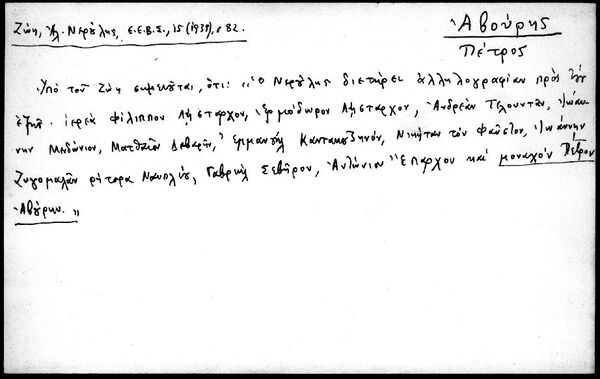 Ζώη, Ἁλ. Νερούλης, Ε.Ε.Β.Σ., 15 (1939), σ 82.
Ἀβούρης
Πέτρος
Ὑπὸ τοῦ Ζώη σημειοῦται, ὅτι: "ὁ Νερούλης διετήρει ἀλληλογραφίαν πρὸς
ἑξῆς: ἱερέα Φίλιππον Λήσταρχον, Ἑρμόδωρον Λήσταρχον, Ἀνδρέαν Τελούνταν, Ἰωάν-
νην Μινδόνιον, Ματθαῖον Δεβαρῆν, Ἐμμανουὴλ Καντακουζηνόν, Νικήταν τὸν Φαῦστον, Ἰωάννην
Ζυγομαλᾶν ρήτορα Ναυπλίου, Γαβριὴλ Σεβῆρον, Ἀντώνιον Ἔπαρχον καὶ μοναχὸν Πέτρον
Ἀβούρην."